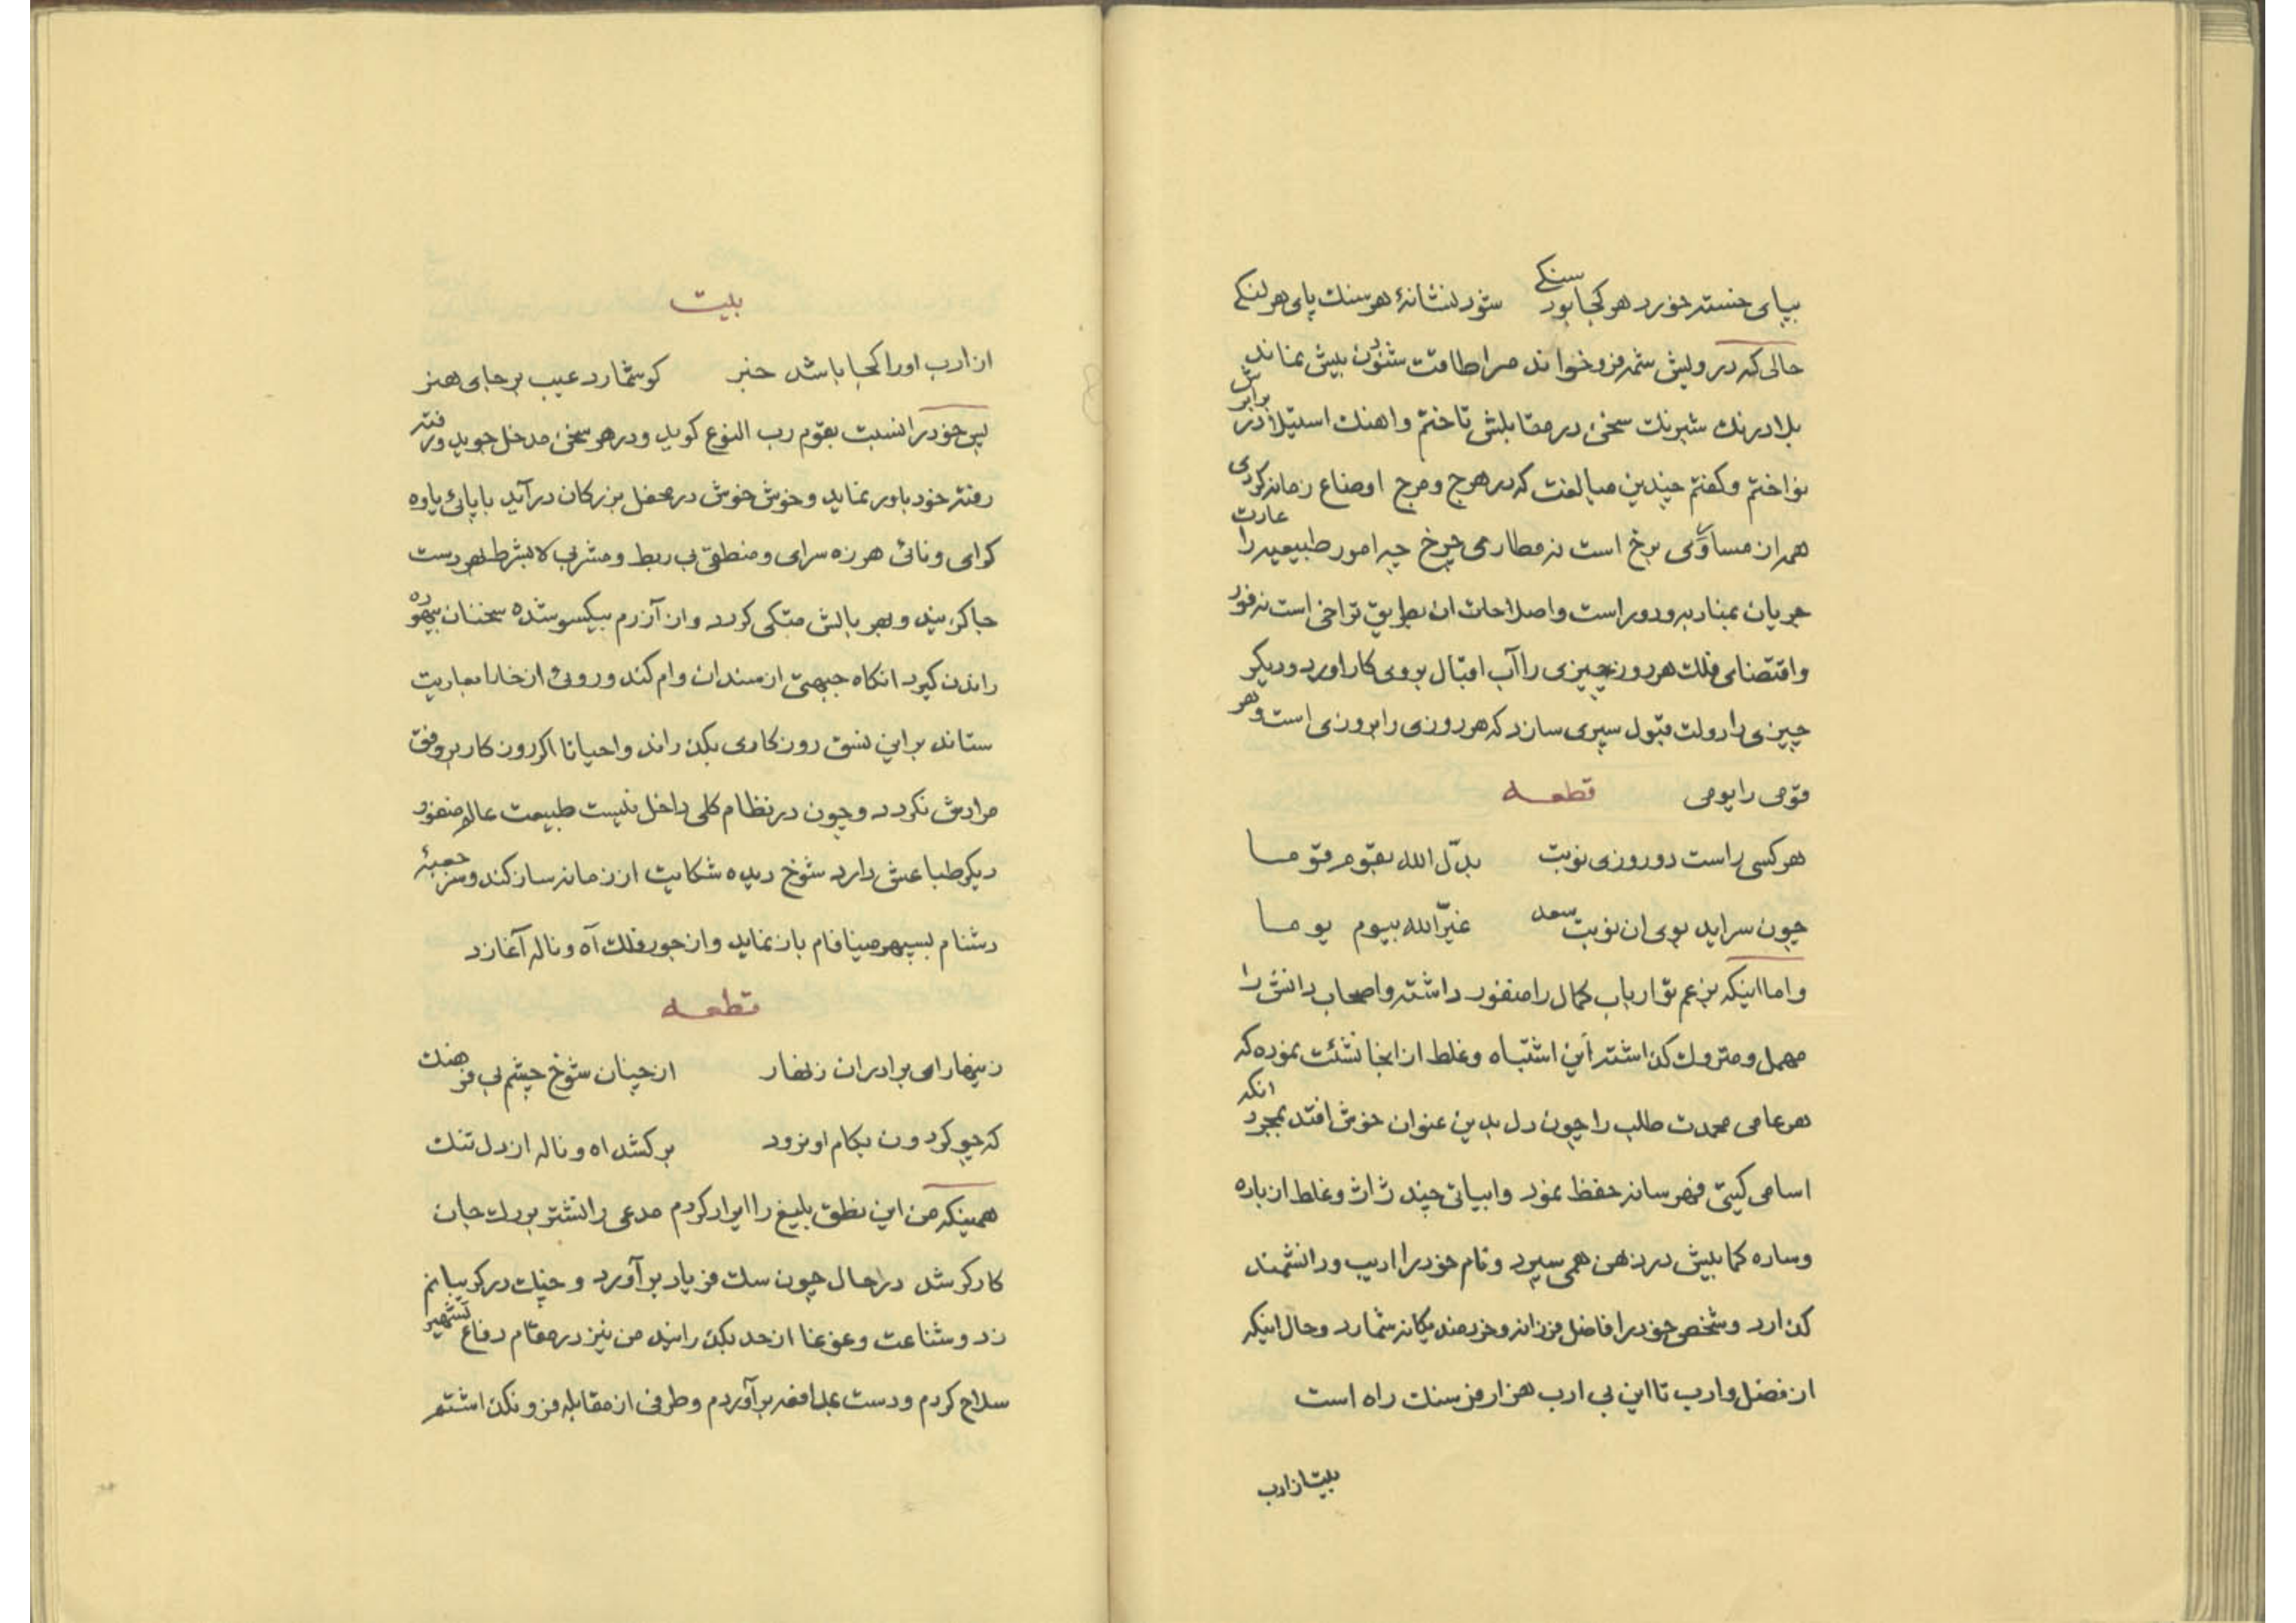 بپای خسته خورد هر کجا بود سنکے شود نشانهٔ هر سنک پای هر لنکے
حالی که درویش شمه فرو خواند مرا طاقت شنودن بیش نماند
بلادرنک شبرنک سخن در مقابلش تاختم و اهنک استیلا در برابرش
نواختم و کفتم چندین مبالغت که در هرج و مرج اوضاع زمانه کردی
همه از مساوی برخ است نه مطارمی چرخ چه امور طبیعیه را عادت
جریان بمنار به و دور است و اصلاحات ان بطریق تراخی است نه فور
و اقتضای فلک هر روز چیزی را آب اقبال بروی کار اورد و دیکر
چیزی را دولت قبول سپری سازد که هر روزی را بروزی است و هر
قومی را یومی قطعه
هر کسی راست دو روزی نوبت بدّل الله بقوم قوما
چون سراید بوی ان نوبت سعد غیّر الله بیوم یوما
و اما اینکه بزعم تو ارباب کمال را منفور داشته و اصحاب دانش را
مهمل و متروک کذاشته این اشتباه و غلط از انجا نشئت نموده که
هر عامی محمدت طلب را چون دل بدین عنوان خوش افتد بمجرد انکه
اسامی کتبی فهرسانه حفظ نمود و ابیاتی چند ژاژ و غلط از باره
و ساره کمابیش در ذهن همی سپرد و نام خود را ادیب و دانشمند
کذارد و شخص خود را فاضل فرزانه و خردمند یکانه شمارد و حال اینکه
از فضل و ادب تا این بی ادب هزار فرسنک راه است
بیت از ادب
بیت
از ادب او را کجا باشد خبر کو شمارد عیب بر جای هنر
پس خود را نسبت بقوم رب النوع کوید و در هر سخن مدخل جوید و رفته
رفته خود باور نماید و خوش خوش در محفل بزرکان درآید با پائی یاوه
کرای و نائی هرزه سرای و منطقی بی ربط و مشربی لا بشرط بهر دست
جا کزیند و بهر بالش متکی کردد و از آزرم بیکسو شده سخنان بیهوده
راندن کیرد انکاه جبهتی از سندان وام کند و روئی از خارا بعاریت
ستاند بر این نسق روزکاری بکذراند و احیانا اکر روزکار بر وفق
مرادش نکردد و چون در نظام کلی داخل نیست طبیعت عالم منفور
دیکر طباعش دارد شوخ دیده شکایت از زمانه ساز کند و سر جعبهٔ
دشنام بسپهر مینافام باز نماید و از جور فلک آه و ناله آغازد
قطعه
زینهار ای برادران زنهار از چنان شوخ چشم بی فرهنک
که چو کردون بکام او نرود برکشد اه و ناله از دل تنک
همینکه من این نطق بلیغ را ایراد کردم مدعی را نشتر بر رک جان
کارکر شد در حال چون سک فریاد برآورد و چنک در کریبانم
زد و شناعت و غوغا از حد بکذرانید من نیز در مقام دفاع تشهیر
سلاح کردم و دست بمدافعه برآوردم و طرفی از مقابله فرو نکذاشتم